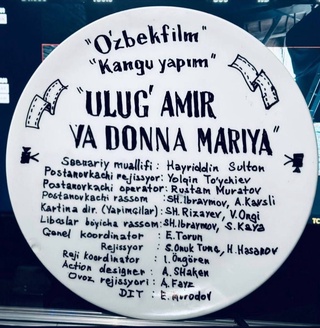 "O'zbekfilm"
"Kangu yapim"
"ULUG' AMIR
VA DONNA MARIYA"
Ssenariy muallifi : Hayriddin Sulton
Postanovkachi rejissyor: Yolqin To'ychiev
Postanovkachi operator: Rustam Muratov
Postanovkachi rassom :SH. Ibraymov, A. Kaysli
Kartina dir. (Yapimcilar) :SH. Rizayev, V. Ongi
Liboslar bo'yicha rassom:SH. Ibraymov, S. Kaya
Genel koordinator : E. Torun
Rejissyor : S. Onuk Tung, H. Hasanov
Reji koordinator : I. Öngören
Action designer : A. SHaken
Ovoz rejissori : A. Fayz
DIT : E. Morodov